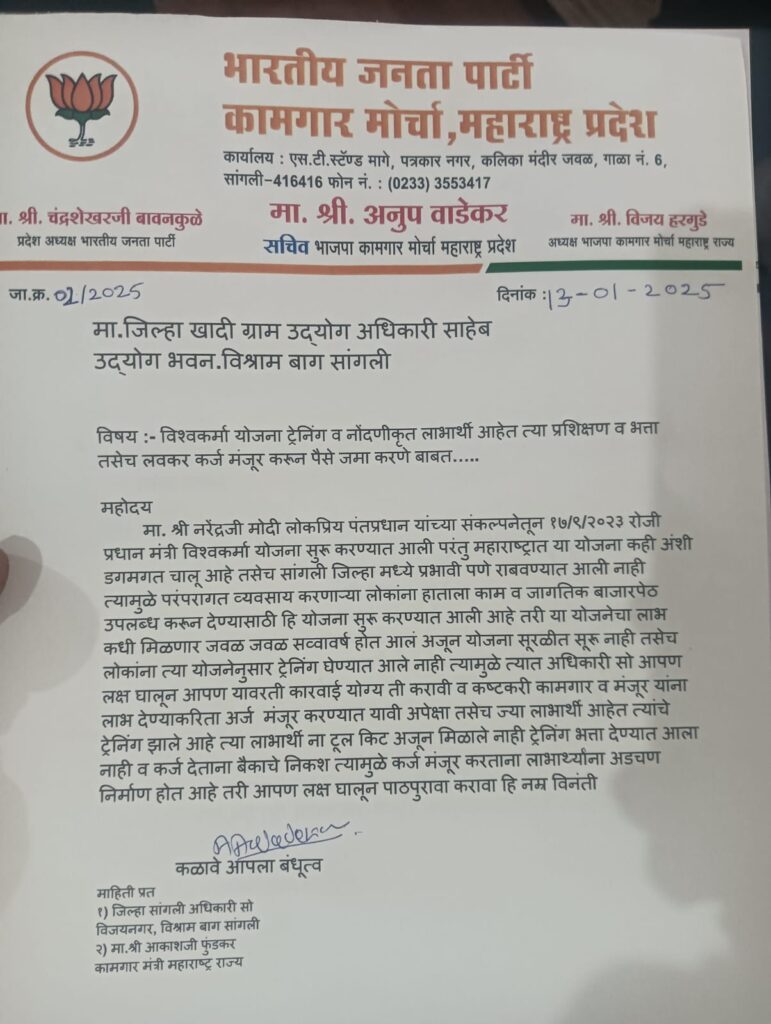 भारतीय जनता पार्टी
कामगार मोर्चा,महाराष्ट्र प्रदेश
कार्यालय : एस.टी.स्टॅण्ड मागे, पत्रकार नगर, कलिका मंदीर जवळ, गाळा नं. 6,
सांगली-416416 फोन नं. : (0233) 3553417
ा. श्री. चंद्रशेखरजी बावनकुळे
प्रदेश अध्यक्ष भारतीय जनता पार्टी
मा. श्री. अनुप वाडेकर
सचिव भाजपा कामगार मोर्चा महाराष्ट्र प्रदेश
मा. श्री. विजय हरगुडे
अध्यक्ष भाजपा कामगार मोर्चा महाराष्ट्र राज्य
जा.क्र. 02/2025 दिनांक :13-01-2025
मा.जिल्हा खादी ग्राम उद्योग अधिकारी साहेब
उद्योग भवन.विश्राम बाग सांगली
विषय :- विश्वकर्मा योजना ट्रेनिंग व नोंदणीकृत लाभार्थी आहेत त्या प्रशिक्षण व भत्ता
तसेच लवकर कर्ज मंजूर करून पैसे जमा करणे बाबत.....
महोदय
मा. श्री नरेंद्रजी मोदी लोकप्रिय पंतप्रधान यांच्या संकल्पनेतून १७/९/२०२३ रोजी
प्रधान मंत्री विश्वकर्मा योजना सुरू करण्यात आली परंतु महाराष्ट्रात या योजना कही अंशी
डगमगत चालू आहे तसेच सांगली जिल्हा मध्ये प्रभावी पणे राबवण्यात आली नाही
त्यामुळे परंपरागत व्यवसाय करणाऱ्या लोकांना हाताला काम व जागतिक बाजारपेठ
उपलब्ध करून देण्यासाठी हि योजना सुरू करण्यात आली आहे तरी या योजनेचा लाभ
कधी मिळणार जवळ जवळ सव्वावर्ष होत आलं अजून योजना सूरळीत सूरू नाही तसेच
लोकांना त्या योजनेनुसार ट्रेनिंग घेण्यात आले नाही त्यामुळे त्यात अधिकारी सो आपण
लक्ष घालून आपण यावरती कारवाई योग्य ती करावी व कष्टकरी कामगार व मंजूर यांना
लाभ देण्याकरिता अर्ज मंजूर करण्यात यावी अपेक्षा तसेच ज्या लाभार्थी आहेत त्यांचे
ट्रेनिंग झाले आहे त्या लाभार्थी ना टूल किट अजून मिळाले नाही ट्रेनिंग भत्ता देण्यात आला
नाही व कर्ज देताना बैकाचे निकश त्यामुळे कर्ज मंजूर करताना लाभार्थ्यांना अडचण
निर्माण होत आहे तरी आपण लक्ष घालून पाठपुरावा करावा हि नम्र विनंती
कळावे आपला बंधूत्व
माहिती प्रत
१) जिल्हा सांगली अधिकारी सो
विजयनगर, विश्राम बाग सांगली
२) मा.श्री आकाशजी फुंडकर
कामगार मंत्री महाराष्ट्र राज्य